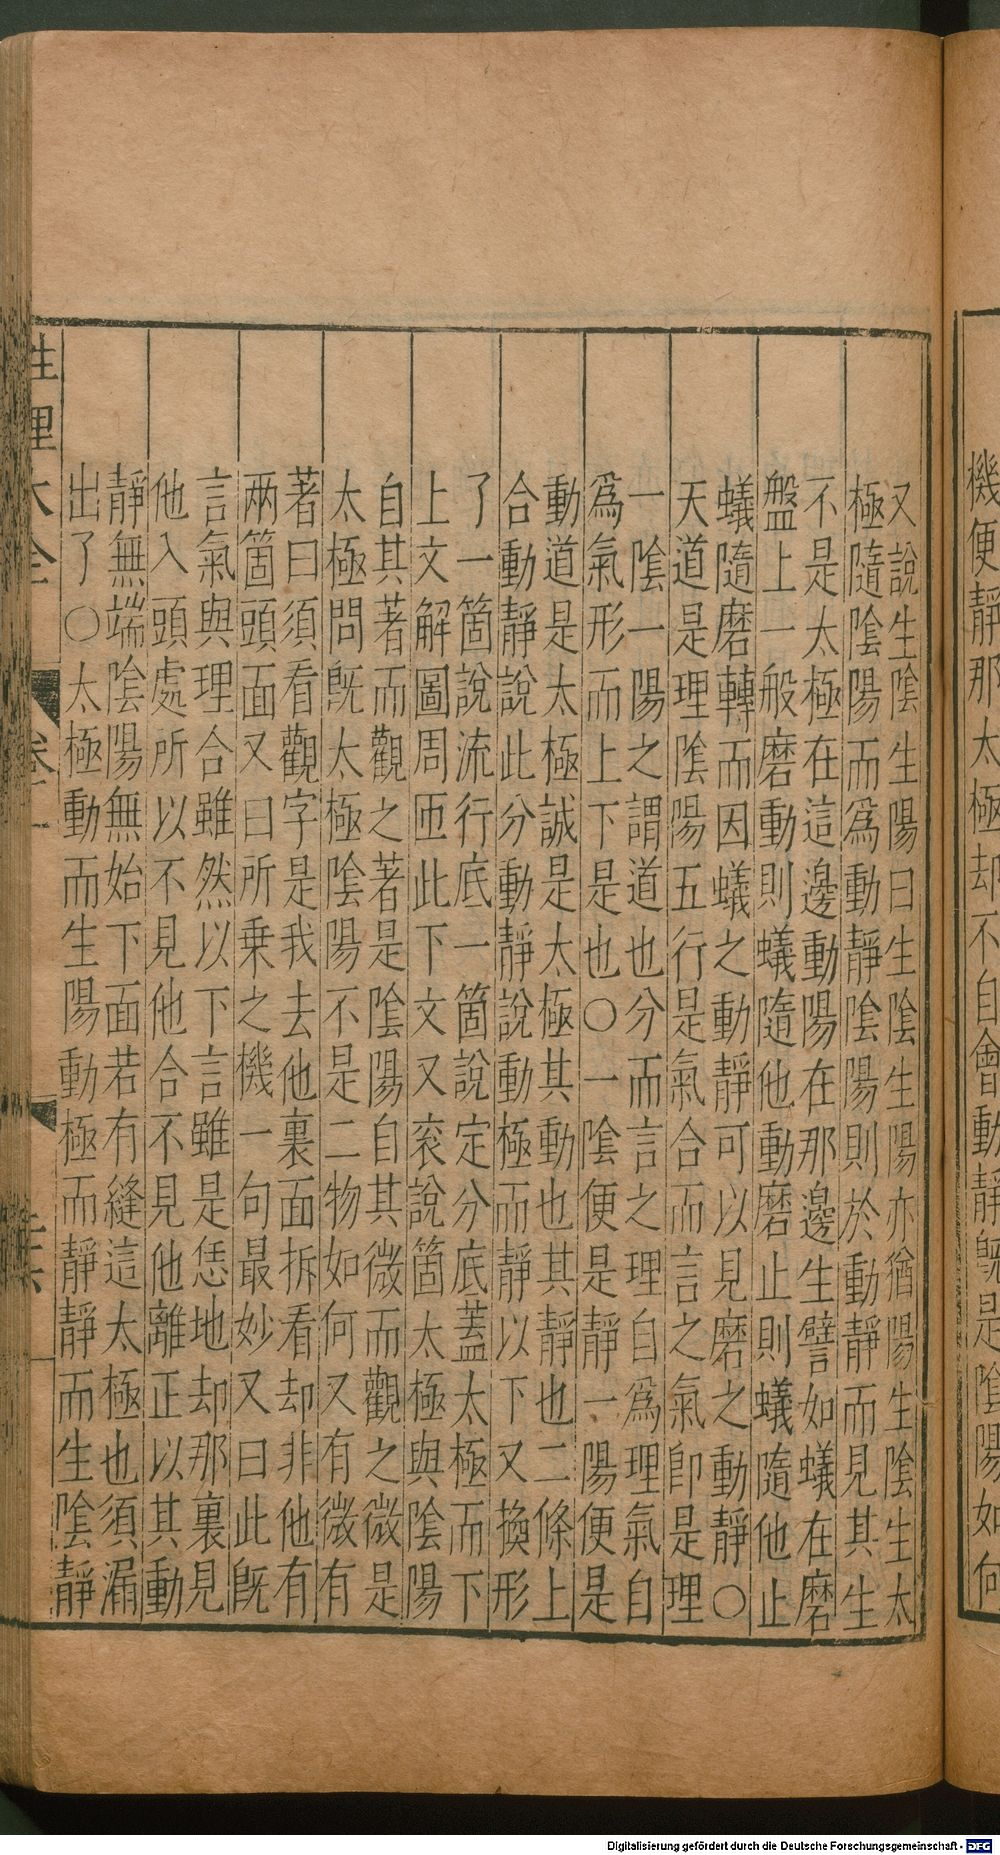 機便靜那太極却不自會動靜旣是隂陽如何
又說生隂生陽曰生隂生陽亦猶陽生隂生太
極隨隂陽而爲動靜隂陽則於動靜而見其生
不是太極在這邊動陽在那邊生譬如蟻在磨
盤上一般磨動則蟻隨他動磨止則蟻隨他止
蟻隨磨轉而因蟻之動靜可以見磨之動靜○
天道是理隂陽五行是氣合而言之氣卽是理
一隂一陽之謂道也分而言之理自爲理氣自
爲氣形而上下是也○一隂便是靜一陽便是
動道是太極誠是太極其動也其靜也二條上
合動靜說此分動靜說動極而靜以下又換形
了一箇說流行底一箇說定分底蓋太極而下
上文解圖周匝此下文又衮說箇太極與隂陽
自其著而觀之著是隂陽自其微而觀之微是
太極問旣太極隂陽不是二物如何又有微有
著曰須看觀字是我去他裏面拆看却非他有
兩箇頭面又曰所乗之機一句最妙又曰此旣
言氣與理合雖然以下言雖是恁地却那裏見
他入頭處所以不見他合不見他離正以其動
靜無端隂陽無始下面若有縫這太極也須漏
出了○太極動而生陽動極而靜靜而生隂靜
性理大全
Digitalisierung gefördert durch die Deutsche Forschungsgemeinschaft - DFG